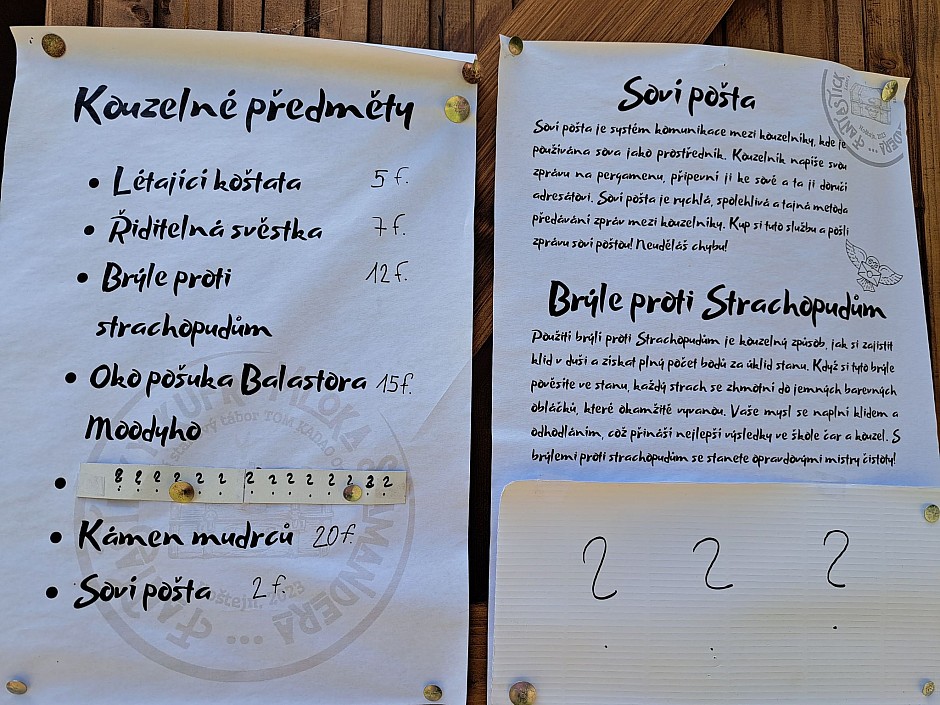 Kouzelné předměty
• Létající košťata 5 f.
• Řiditelná svěstka 7 f.
• Brýle proti 12 f.
strachopudům
• Oko pošuka Balastora 15 f.
Moodyho
• ? ? ? ? ? ? ? ? ? ? ? ? ?
• Kámen mudrců 20 f.
• Soví pošta 2 f.
Soví pošta
Soví pošta je systém komunikace mezi kouzelníky, kde je
používána sova jako prostředník. Kouzelník napíše svou
zprávu na pergamenu, připevní ji ke sově a ta ji doručí
adresátovi. Soví pošta je rychlá, spolehlivá a tajná metoda
předávání zpráv mezi kouzelníky. Kup si tuto službu a pošli
zprávu soví poštou! Neuděláš chybu!
Brýle proti Strachopudům
Použití brýlí proti Strachopudům je kouzelný způsob, jak si zajistit
klid v duši a získat plný počet bodů za úklid stanu. Když si tyto brýle
pověsíte ve stanu, každý strach se zhmotní do jemných barevných
obláčků, které okamžitě vyvanou. Vaše mysl se naplní klidem a
odhodláním, což přináší nejlepší výsledky ve škole čar a kouzel. S
brýlemi proti strachopudům se stanete opravdovými mistry čistoty!
? ? ?